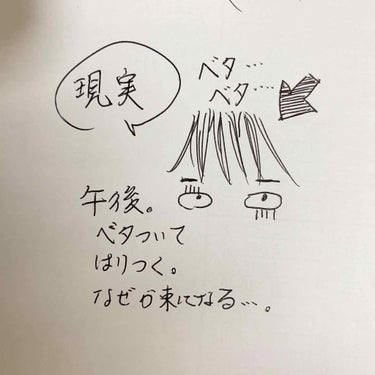 現実
ベタ…
ベタ…
午後。
ベタついて
はりつく。
なぜか束になる…。